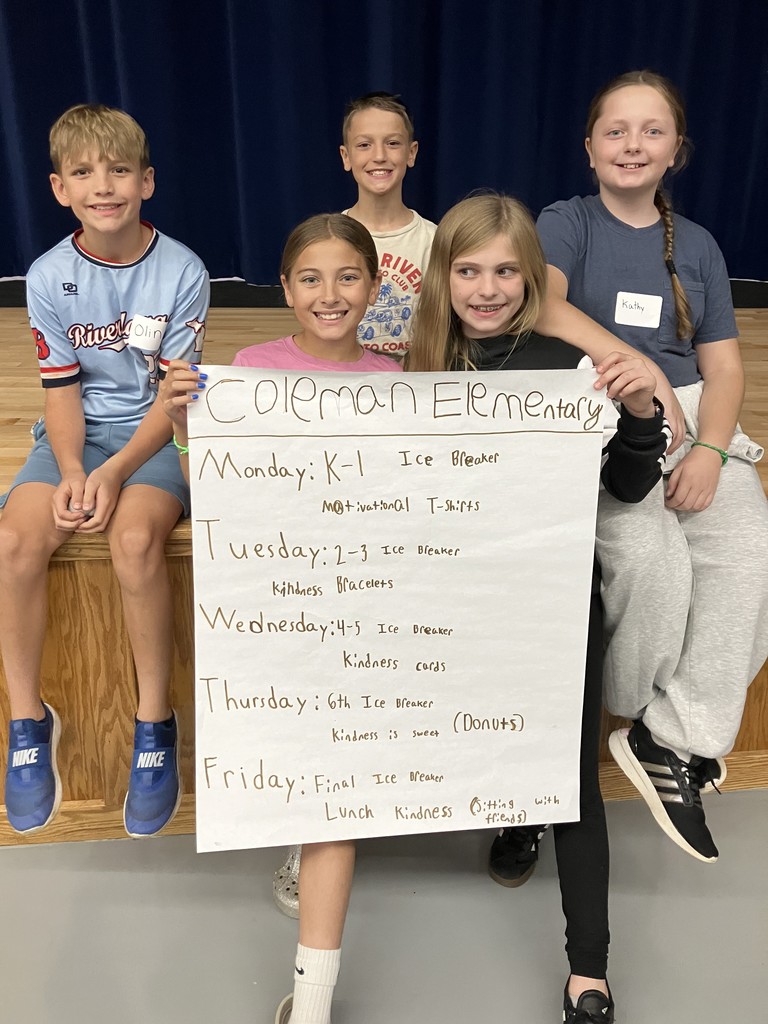 Coleman Elementary
Monday: K-1 Ice Breaker
Motivational T-Shirts
Tuesday: 2-3 Ice Breaker
Kindness Bracelets
Wednesday: 4-5 Ice Breaker
Kindness cards
Thursday: 6th Ice Breaker
Kindness is sweet (Donuts)
Friday: Final Ice Breaker
Lunch Kindness (Sitting with
friends)
Olin
Kathy
RIVER
TO CLUB
TO COAS
NIKE
NIKE